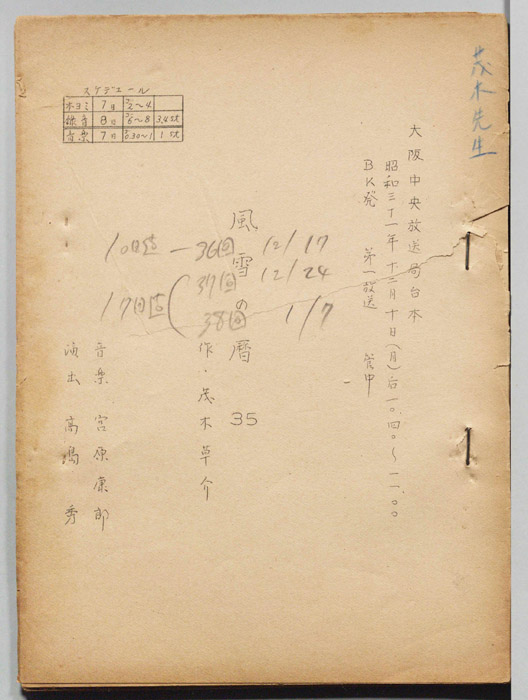 茂木先生
大阪中央放送局台本
昭和三十一年十二月十日(月)后一〇.四〇〜一一.〇〇
BK発 第一放送 管中
風雪の暦 35
作・茂木草介
音楽 宮原康郎
演出 高島秀
スケデュール
本ヨミ 7日 2〜4
録音 8日 6〜8 3,4st
音楽 7日 0.30〜1 1st
10日迄 — 36回 12/17
17日迄 ( 37回 12/24
38回 1/7